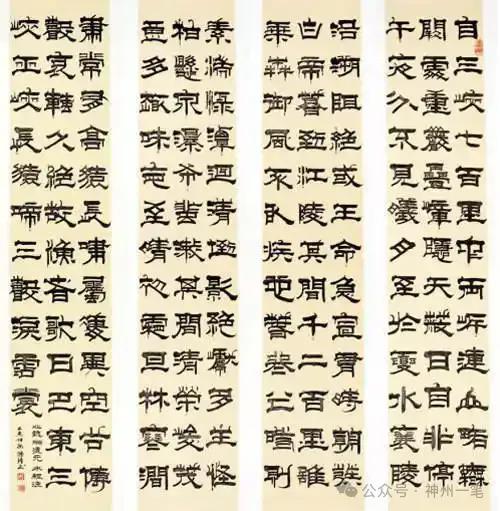 自三峽七百里中兩岸連山略無
闕處重巖疊嶂隱天蔽日自非停
午夜分不見曦月至於夏水襄陵
沿溯阻絕或王命急宣有時朝發
白帝暮到江陵其間千二百里雖
乘奔御風不以疾也春冬之時則
素湍綠潭迴清倒影絕巘多生怪
柏懸泉瀑布飛漱其間清榮峻茂
良多趣味每至晴初霜旦林寒澗
肅常有高猿長嘯屬淒異空谷傳
響哀轉久絕故漁者歌曰巴東三
峽巫峽長猿啼三聲淚沾裳
北魏酈道元水經注
公众号·神州一笔